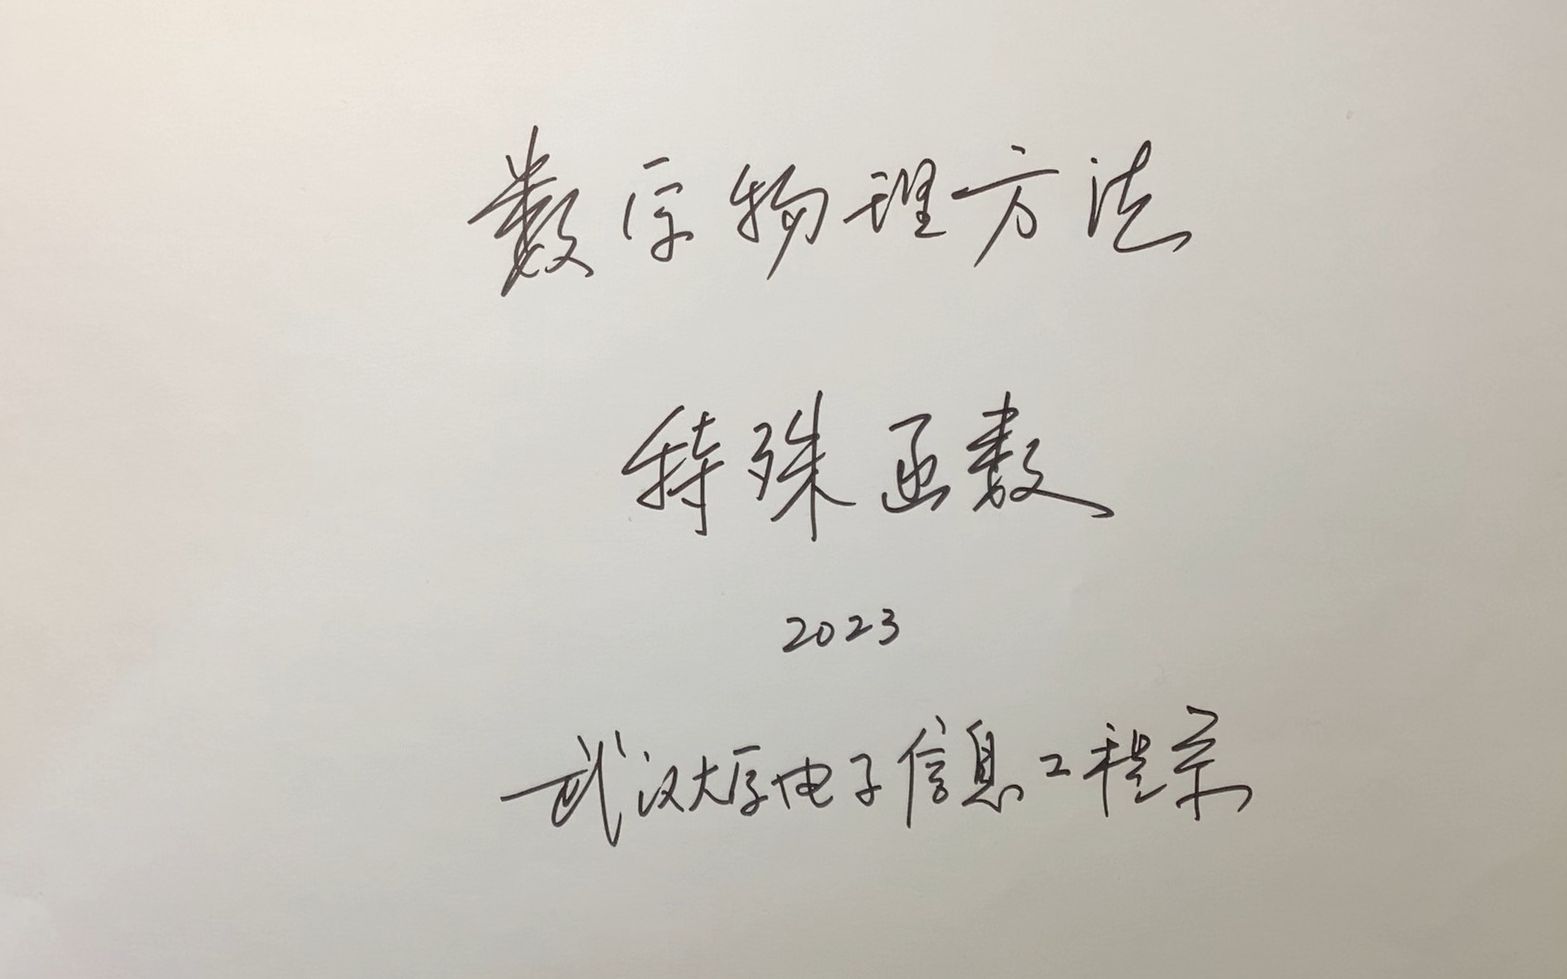 数学物理方法
特殊函数
2023
武汉大学电子信息工程系